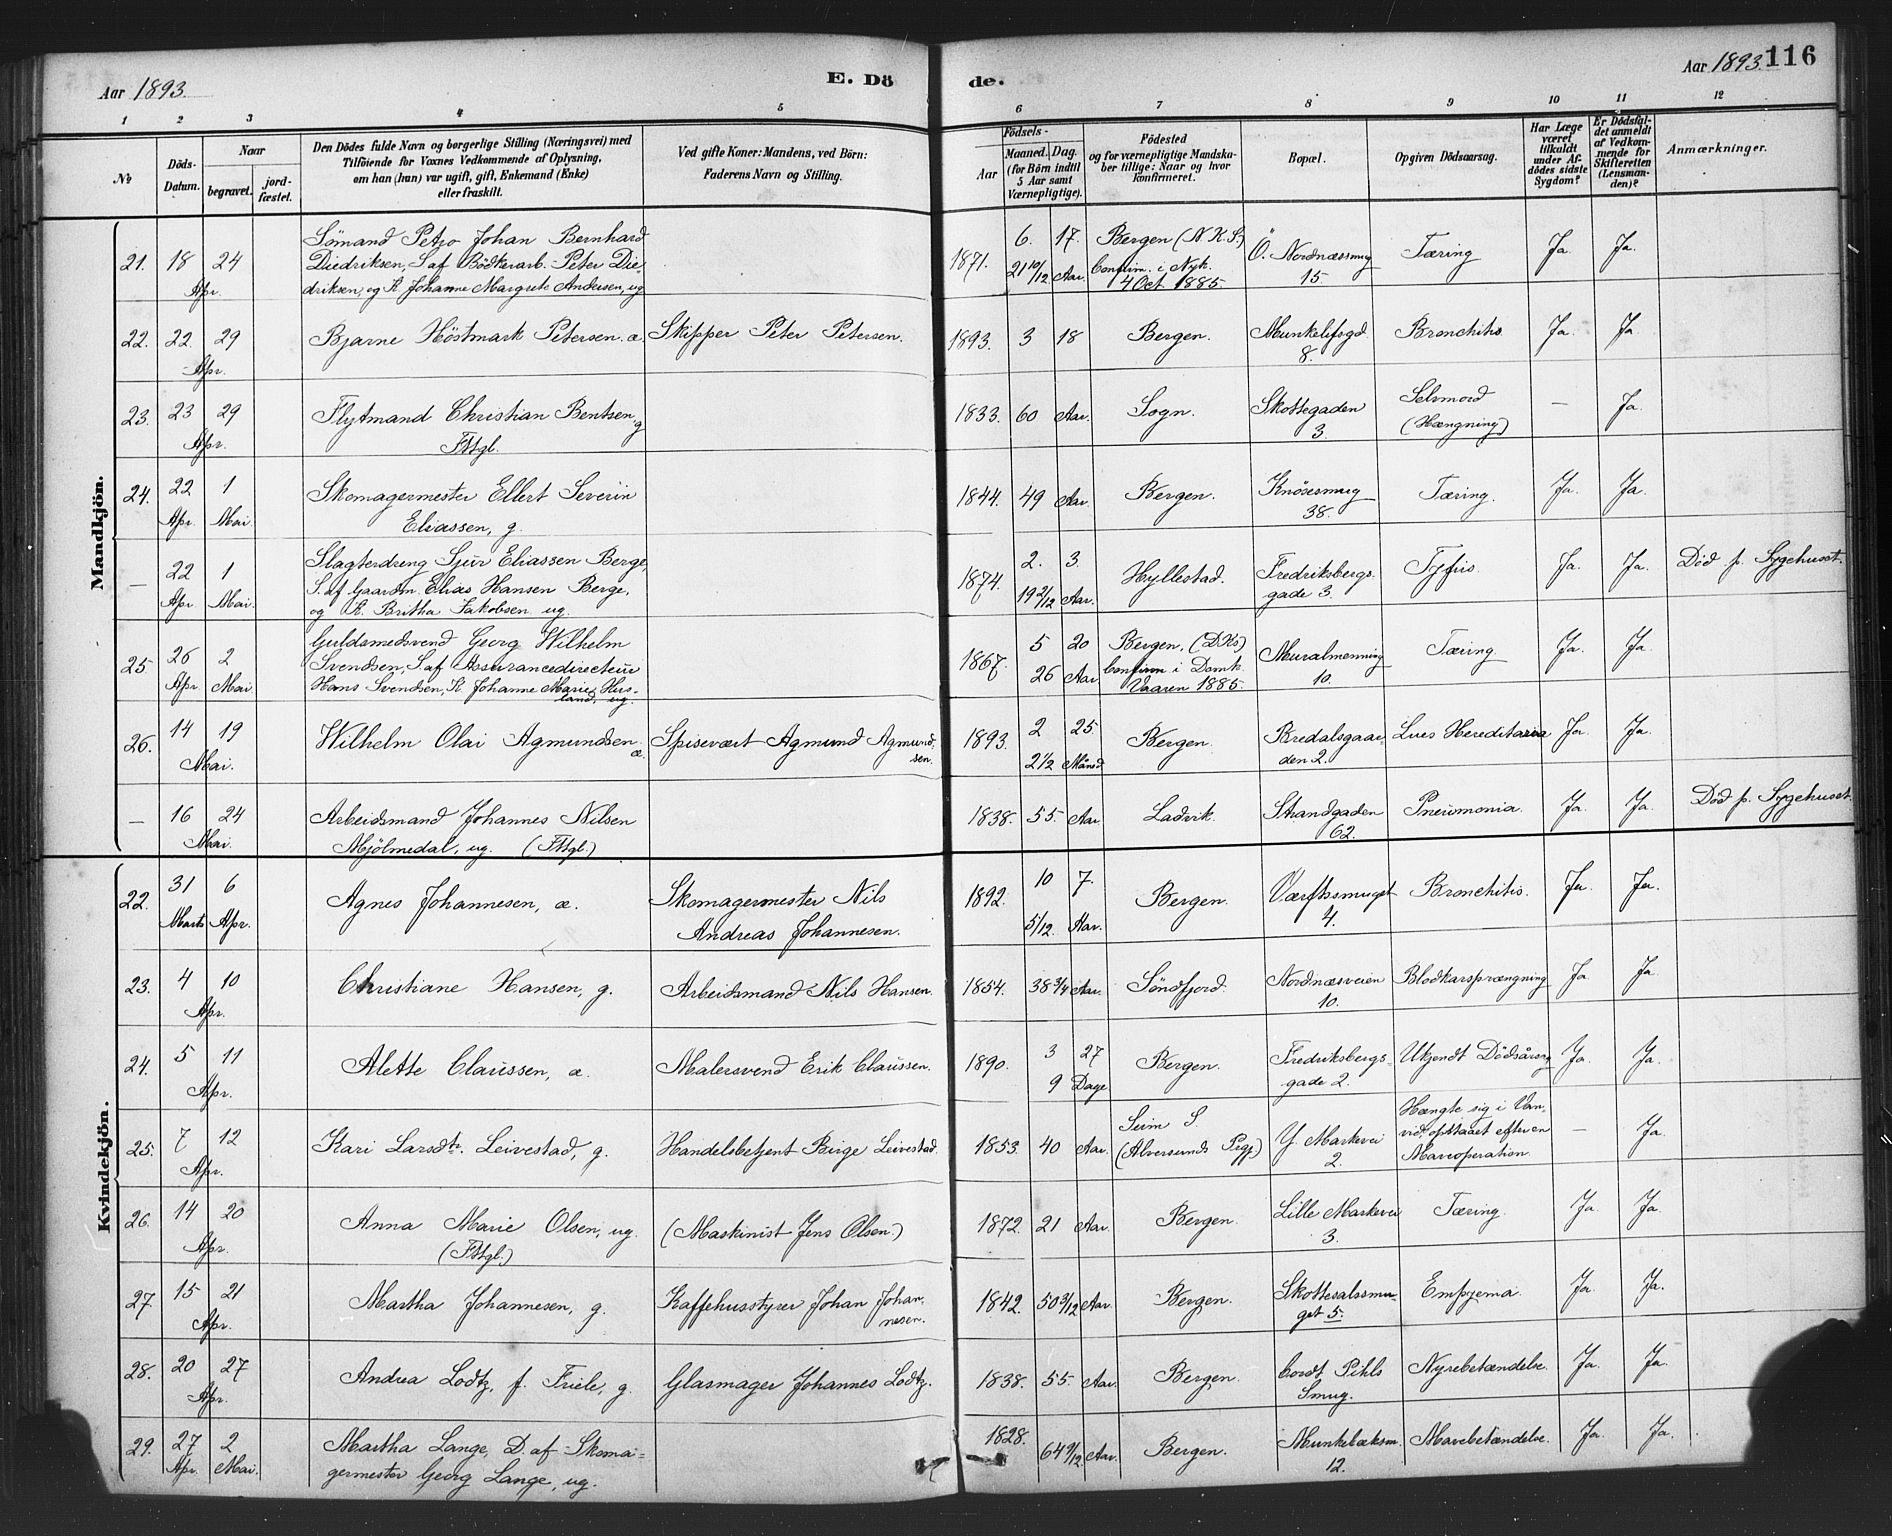 Aar 1893.
E. Dö
de.
Aar 1893. 116
1 2 3 4 5 6 7 8 9 10 11 12
№
Döds-Datum.
Naar
begravet.
jord-fæstet.
Den Dödes fulde Navn og borgerlige Stilling (Næringsvei) med
Tilföiende for Voxnes Vedkommende af Oplysning,
om han (hun) var ugift, gift, Enkemand (Enke)
eller fraskilt.
Ved gifte Koner: Mandens, ved Börn:
Faderens Navn og Stilling.
Födsels-
Aar
Maaned. Dag.
(for Börn indtil
5 Aar samt
Værnepligtige).
Födested
og for værnepligtige Mandska-
ber tillige: Naar og hvor
konfirmeret.
Bopæl.
Opgiven Dödsaarsag.
Har Læge
været
tilkaldt
under Af-
dödes sidste
Sygdom?
Er Dödsfal-
det anmeldt
af Vedkom-
mende for
Skifteretten
(Lensman-
den)?
Anmærkninger.
Mandkjön.
21. 18 24 Apr. Sömand Petro Johan Bernhard
Diedriksen, S. af Bödkerarb. Peter Die-
driksen, og K. Johanne Margrete Andersen, ug.
1871. 6. 17. 21 10/12 Aar. Bergen (N.K.S.)
Confirm. i Nyk.
4 Oct. 1885.
Ö. Nordnæssmug
15.
Tæring Ja. Ja.
22. 22 29 Apr. Bjarne Höstmark Petersen. æ. Skipper Peter Petersen. 1893. 3 18 Bergen. Munkelifsgd.
8.
Bronchitis Ja. Ja.
23. 23 29 Apr. Flytmand Christian Bentsen, g
FMgl.
1833. 60 Aar. Sogn. Skottegaden
3.
Selvmord
(Hængning)
— Ja.
24. 22 Apr. 1 Mai. Skomagermester Ellert Severin
Eliassen, g.
1844. 49 Aar. Bergen. Knösesmug
38.
Tæring. Ja. Ja.
— 22 Apr. 1 Mai. Slagterdreng Sjur Eliassen Berge,
S. af Gaardm. Elias Hansen Berge,
og K. Britha Jakobsen. ug.
1874. 2. 3. 19 2/12 Aar. Hyllestad. Fredriksbergs-
gade 3.
Tyfus. Ja. Ja. Död p. Sygehuset.
25. 26 Apr. 2 Mai. Guldsmedsvend Georg Wilhelm
Svendsen, S. af Assurancedirecteur
Hans Svendsen, K. Johanne Marie Hus-
land, ug.
1867. 5 20 26 Aar. Bergen, (DKs)
Confirm i Domk.
Vaaren 1885.
Muralmenning
10.
Tæring Ja. Ja.
26. 14 19 Mai. Wilhelm Olai Agmundsen. æ. Spisevært Agmund Agmund-
sen.
1893. 2 25. 2 1/2 Månd Bergen. Bredalsgaar-
den 2.
Lues Hereditaria Ja. Ja.
— 16 24 Mai. Arbeidsmand Johannes Nilsen
Mjölmedal, ug. (FMgl.)
1838. 55. Aar. Ladvik. Strandgaden
62.
Pneumonia. Ja. Ja. Död p. Sygehuset.
Kvindekjön.
22. 31 Marts 6 Apr. Agnes Johannesen, æ. Skomagermester Nils
Andreas Johannesen.
1892. 10 7. 5/12 Aar. Bergen. Værftssmuget
4.
Bronchitis. Ja. Ja.
23. 4 10 Apr. Christiane Hansen, g. Arbeidsmand Nils Hansen. 1854. 38 3/4 Aar. Söndfjord. Nordnæsveien
10.
Blodkarsprængning Ja Ja.
24. 5 11 Apr. Alette Claussen, æ. Malersvend Erik Claussen. 1890. 3 27 9 Dage Bergen. Fredriksbergs-
gade 2.
Ukjendt Dödsårsag Ja. Ja.
25. 7 12 Apr. Kari Larsdtr. Leivestad, g. Handelsbetjent Birge Leivestad. 1853. 40 Aar. Seim S.
(Alversunds Prgj.)
Y. Markevei
2.
Hængte sig i Van-
vid opstaaet efter en
Maveoperation.
— Ja.
26. 14 20 Apr. Anna Marie Olsen, ug.
(FMgl.)
(Maskinist Jens Olsen.) 1872. 21 Aar. Bergen. Lille Markevei
3.
Tæring. Ja. Ja.
27. 15 21 Apr. Martha Johannesen, g. Kaffehusstyrer Johan Johan-
nesen.
1842. 50 3/12 Aar. Bergen. Skottesalssmu-
get 5.
Empyema Ja. Ja.
28. 20 27 Apr. Andrea Lodtz, f. Friele, g. Glasmager Johannes Lodtz. 1838. 55. Aar. Bergen. Cordt Pihls
Smug.
Nyrebetændelse. Ja. Ja.
29. 27 Apr. 2 Mai. Martha Lange, D. af Skoma-
germester Georg Lange, ug.
1828. 64 9/12 Aar. Bergen. Munkebæksm.
12.
Mavebetændelse. Ja. Ja.